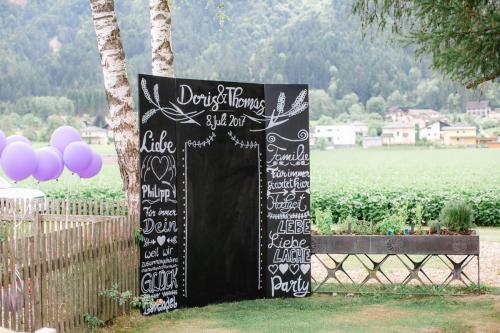 Doris & Thomas
8. Juli 2017
Liebe
Philipp!
Für immer
Dein
weil wir
zusammengehören
GLÜCK
Familie
Für immer
Hochzeit
LEBE
Liebe
LACHE
Party